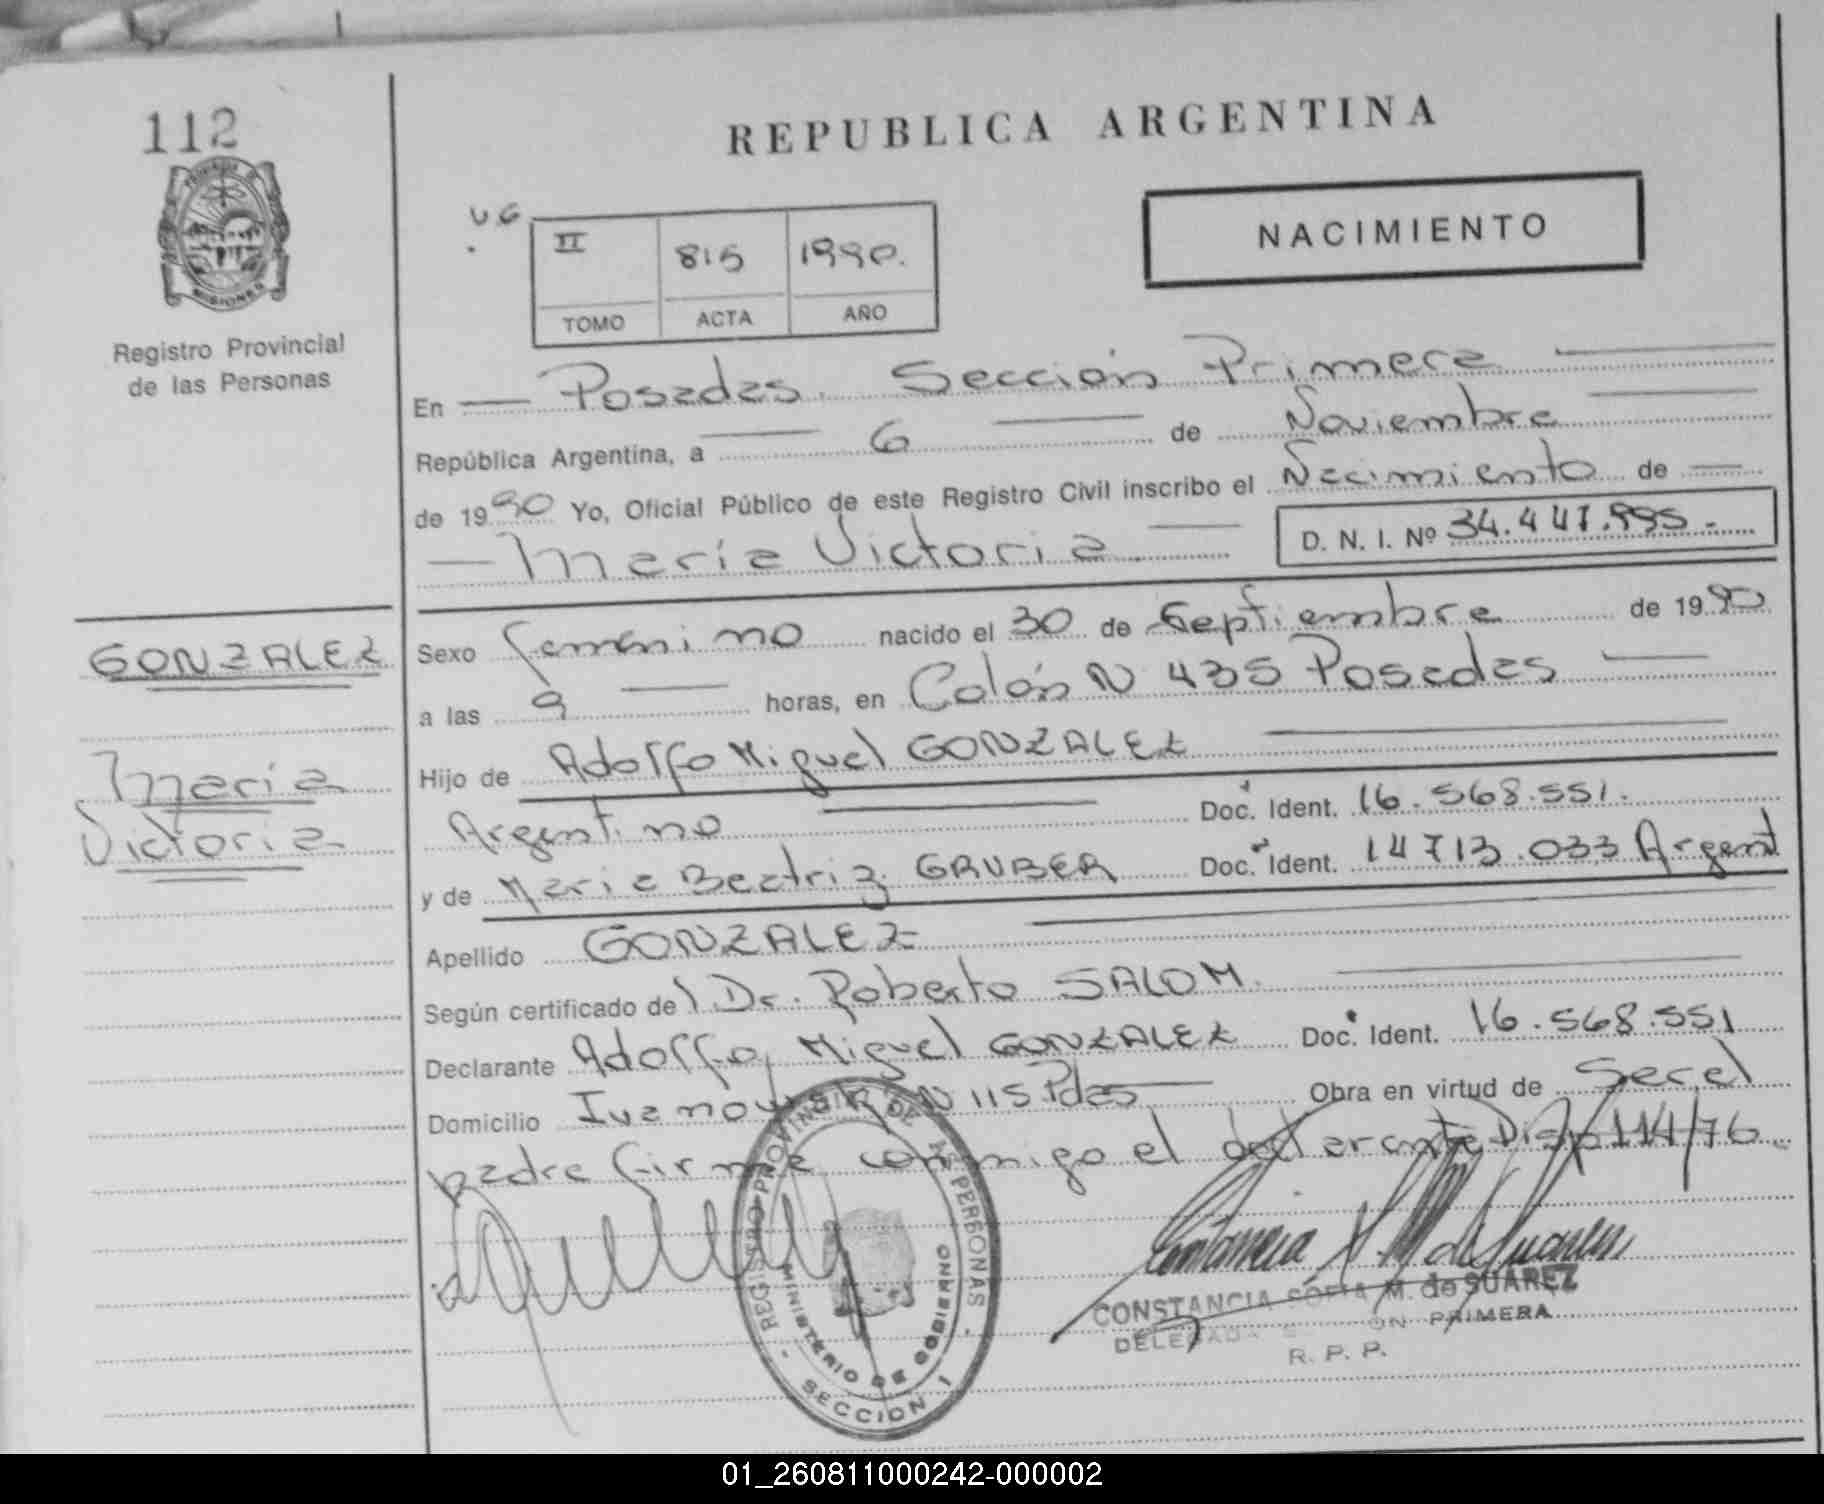 112
REPUBLICA ARGENTINA
PROVINCIA DE MISIONES
Registro Provincial
de las Personas
NACIMIENTO
UG
II 815 1990.
TOMO ACTA AÑO
En — Posadas. Sección Primera
República Argentina, a — 6 — de Noviembre
de 1990 Yo, Oficial Público de este Registro Civil inscribo el Nacimiento de —
— María Victoria — D. N. I. Nº 34.447.995.-
GONZALEZ
María
Victoria
Sexo femenino nacido el 30 de Septiembre de 1990
a las 9 — horas, en Colón N 435 Posadas —
Hijo de Adolfo Miguel GONZALEZ
Argentino — Doc. Ident. 16.568.551.
y de Maria Beatriz GRUBER Doc. Ident. 14713.033 Argent
Apellido GONZALEZ
Según certificado del Dr. Roberto SALOM.
Declarante Adolfo Miguel GONZALEZ Doc. Ident. 16.568.551
Domicilio N 115 Pdas — Obra en virtud de Ser el
padre firma conmigo el declarante Disp 114/76
REGISTRO PROVINCIAL DE LAS PERSONAS
MINISTERIO DE GOBIERNO
SECCION 1
CONSTANCIA SOFIA M. de SUAREZ
DELEGADA SECCION PRIMERA
R. P. P.
01_260811000242-000002